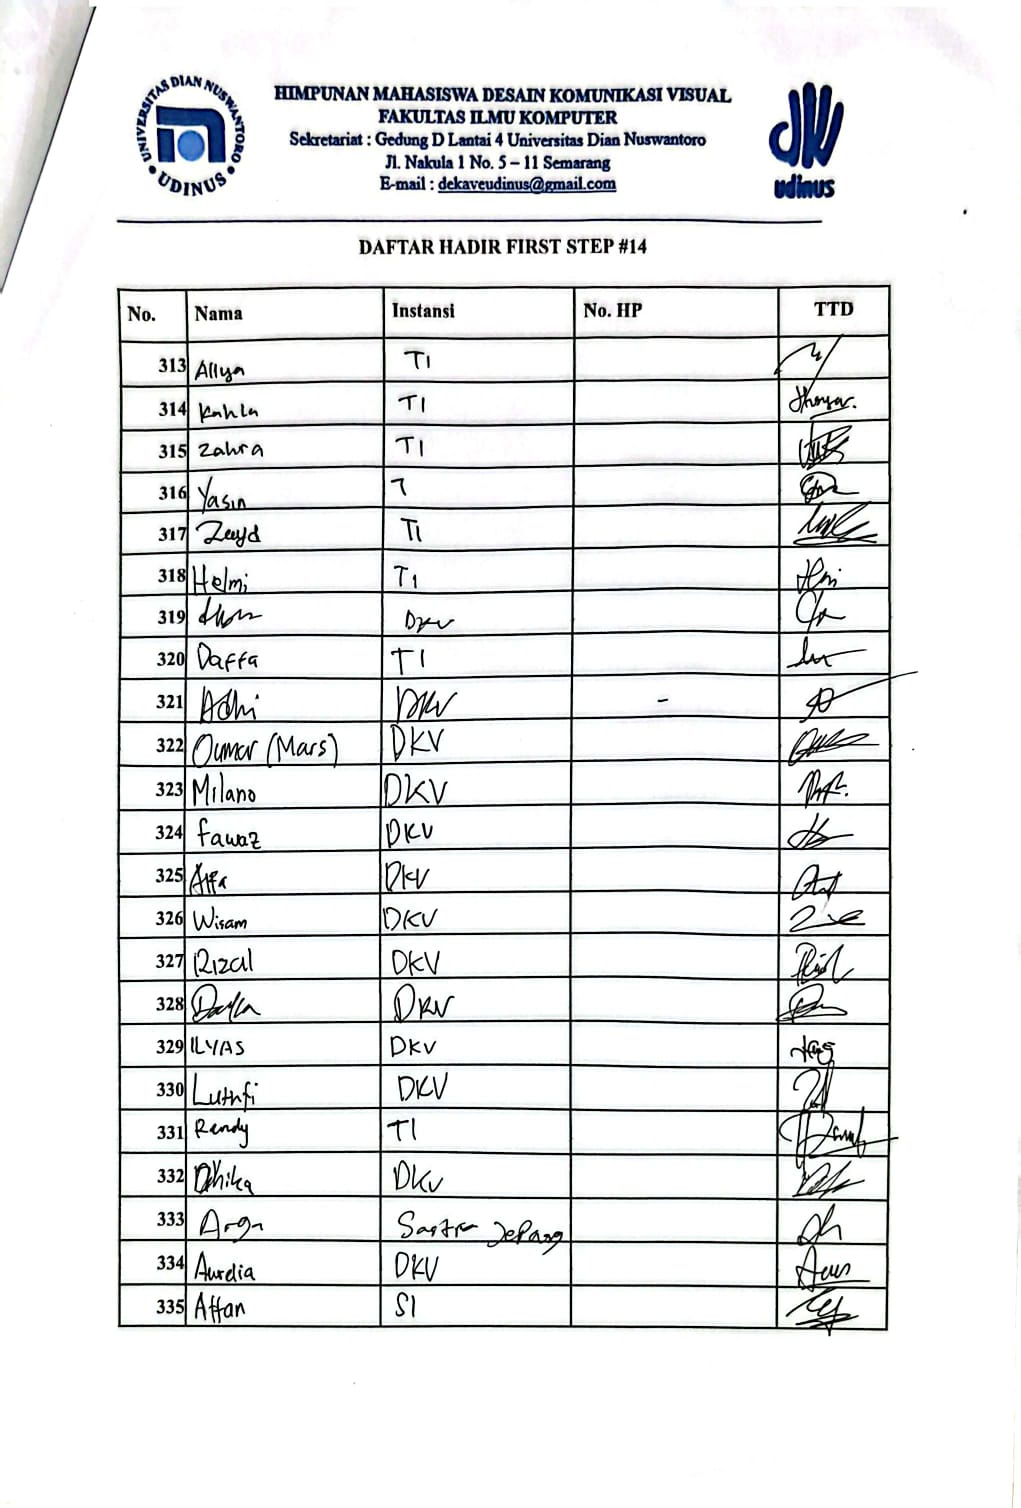 UNIVERSITAS DIAN NUSWANTORO
UDINUS
HIMPUNAN MAHASISWA DESAIN KOMUNIKASI VISUAL
FAKULTAS ILMU KOMPUTER
Sekretariat : Gedung D Lantai 4 Universitas Dian Nuswantoro
Jl. Nakula 1 No. 5 – 11 Semarang
E-mail : dekaveudinus@gmail.com
udinus
DAFTAR HADIR FIRST STEP #14
No. Nama Instansi No. HP TTD
313 Allya TI
314 Kahla TI
315 Zahra TI
316 Yasin
317 Zeyd TI
318 Helmi TI
319 DKV
320 Daffa TI
321 Adhi DKV -
322 Oumar (Mars) DKV
323 Milano DKV
324 Fawaz DKV
325 Alfa DKV
326 Wisam DKV
327 Rizal DKV
328 DKV
329 ILYAS DKV
330 Luthfi DKV
331 Rendy TI
332 Dhika DKV
333 Arga Sastra Jepang
334 Aurelia DKV
335 Affan SI